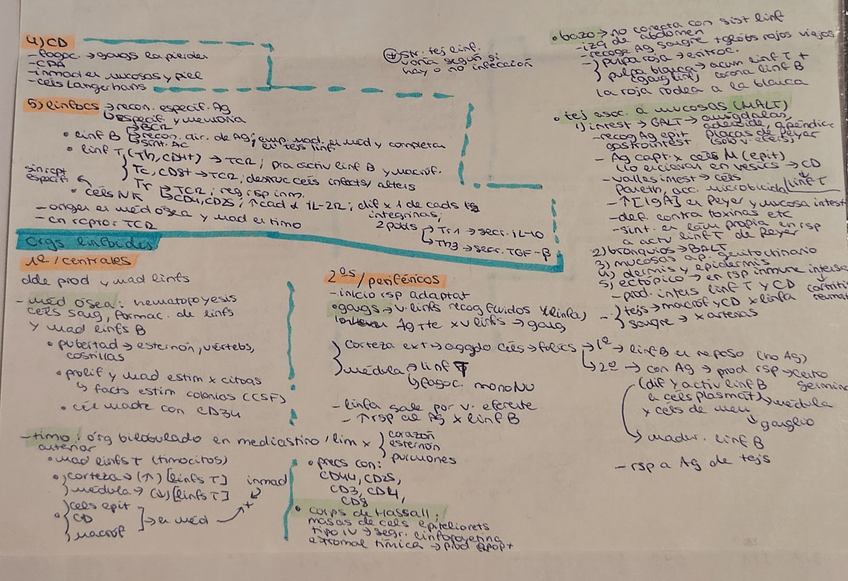 4) CD
- fagoc. → gangs la pierden
- CPA
- inmad en mucosas y piel
- cels Langerhans
⊕ str. tej linf.
varía según si
hay o no infección
5) linfocs → recon. especif. Ag
↳ especif y memoria
• linf B → BCR
recon. dir. de Ag; emp. mad. en med y completan
sint. Ac en tejs linf
• linf T (Th, CD4+) → TCR; pra activ linf B y macróf.
Tc, CD8+ → TCR; destruc céls infects/alters
Tr → TCR; reg rsp inm.
sin rcpt
especif
• céls NK
CD4, CD25; ↑ cad α IL-2R; dif x 1 de cads
integrinas;
2 pobls → Tr1 → secr. IL-10
↳ Th3 → secr. TGF-β
- origen es méd ósea y mad es timo
- en raptor TCR
Orgs linfoides
1os/centrales
dde prod y mad linfs
- méd ósea: hematopoyesis
céls sang, formac. de linfs
y mad linfs B
• pubertad → esternón, vértebs,
costillas
• prolif y mad estim x citoqs
↳ facts estim colonias (CSF)
• cél madre con CD34
- timo: órg bilobulado en mediastino/lim x
anterior
corazón
esternón
pulmones
• mad linfs T (timocitos)
• corteza → (↑) [linfs T] inmad
médula → (↓) [linfs T]
• céls epit
CD
macróf
→ en méd
• precs con:
CD44, CD25,
CD3, CD4,
CD8
• corps de Hassall:
masas de cels epiteliorets
tipo IV → segr. linfopoyetina
estromal tímica → prod apopt
2os/periféricos
- inicio rsp adaptat
• gangs → v. linfs recog fluidos (linfa)
Ag + te x v linfs → gang
corteza ext → agglo céls → folics → 1º → linf B en reposo (no Ag)
↳ 2º → con Ag → prod rsp
médula → linf T
↳ fagoc. monoNu
(dif y activ linf B
a céls plasmát) médula
x cels de mem
↳ ganglio
↳ madur. linf B
- linfa sale por v. eferente
- ↑ rsp al Ag x linf B
- rsp a Ag de tejs
• bazo → no conecta con sist linf
- izq de abdomen
- recoge Ag sangre + globs rojos viejos
- pulpa roja → eritroc.
pulpa blanca → acum linf T +
corona linf B
la roja rodea a la blanca
• tej asoc. a mucosas (MALT)
1) intest → GALT → amígdalas,
adenoide, apéndice
placas de Peyer
(solo v. efers)
- recog Ag epit
gastrointest
- Ag capt x céls M (epit)
lo envian en vesics → CD
- vellos intest → céls
Paneth, acc. microbicida / linf T
- ↑ [IgA] en Peyer y mucosa intest
- def. contra toxinas etc
- sint. en lám propia en rsp
a activ linf T de Peyer
2) bronquios → BALT
3) mucosas ap. genitourinario
4) dermis y epidermis
5) ectópico → en rsp inmune intersa
- prod. inters linf T y CD
- tejs → macróf y CD x linfa
sangre → x arterias